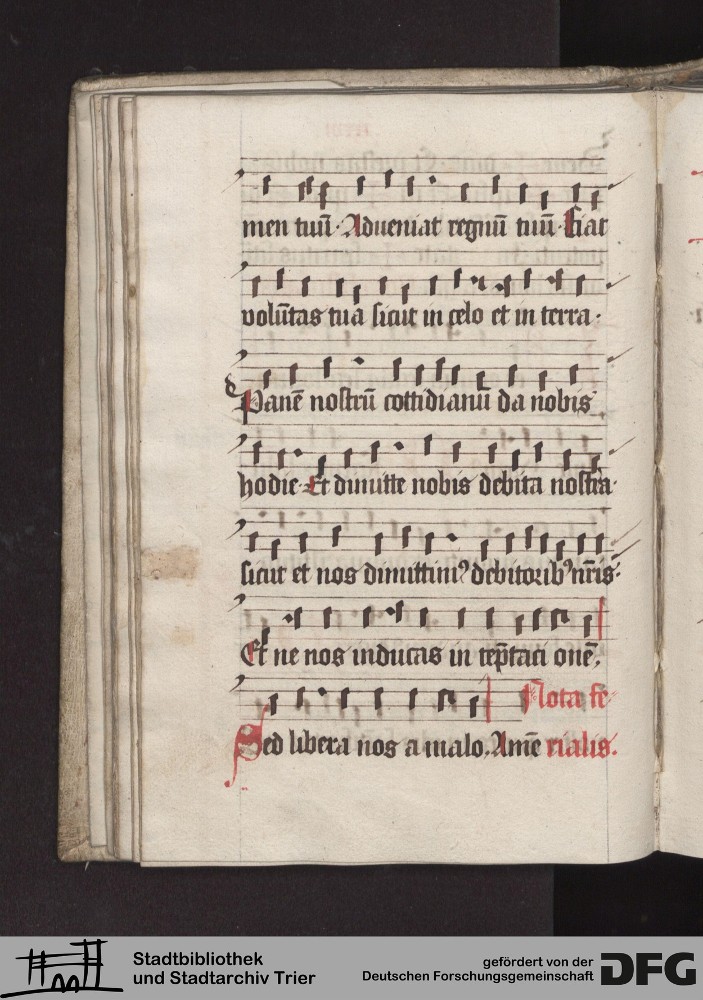 men tuū· Adueniat regnū tuū· Fiat
volūtas tua sicut in celo et in terra·
Panē nostrū cottidianū da nobis
hodie· Et dimitte nobis debita nostra·
sicut et nos dimittim⁹ debitorib⁹ nr̄is·
Et ne nos inducas in tep̄taci onē,
Nota fe-
Sed libera nos a malo, Amē rialis.
Stadtbibliothek
und Stadtarchiv Trier
gefördert von der
Deutschen Forschungsgemeinschaft
DFG